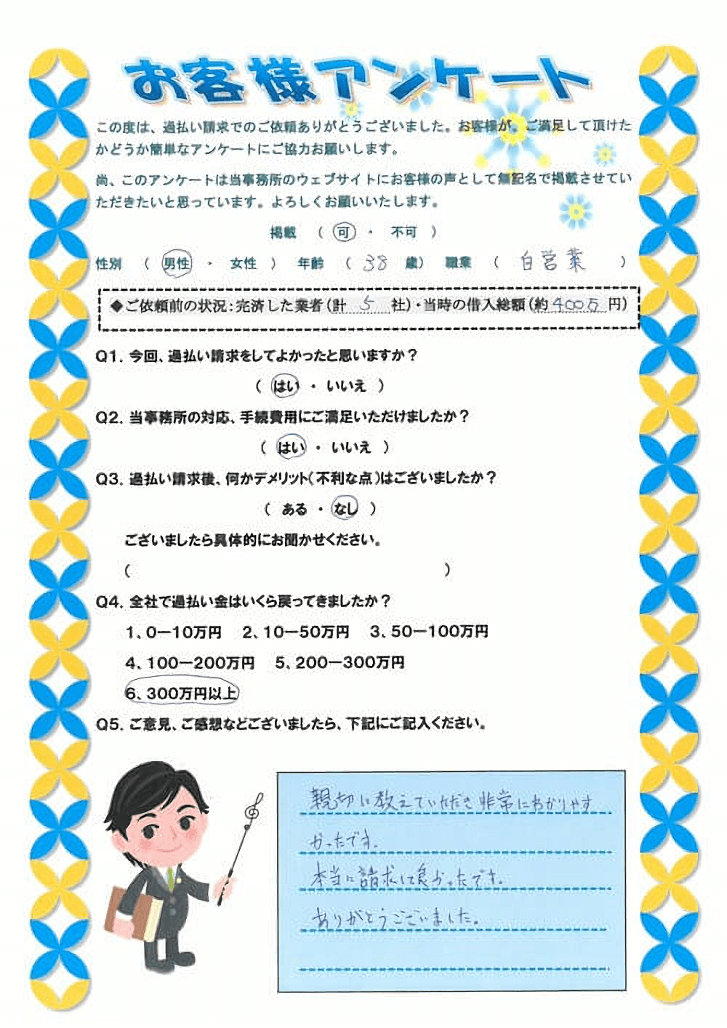 お客様アンケート
この度は、過払い請求でのご依頼ありがとうございました。お客様が、ご満足して頂けた
かどうか簡単なアンケートにご協力お願いします。
尚、このアンケートは当事務所のウェブサイトにお客様の声として無記名で掲載させてい
ただきたいと思っています。よろしくお願いいたします。
掲載 （ 可 ・ 不可 ）
性別 （ 男性 ・ 女性 ） 年齢 （ 38 歳） 職業 （ 自営業 ）
◆ご依頼前の状況：完済した業者（計 5 社）・当時の借入総額（約 400万 円）
Q1. 今回、過払い請求をしてよかったと思いますか？
（ はい ・ いいえ ）
Q2. 当事務所の対応、手続費用にご満足いただけましたか？
（ はい ・ いいえ ）
Q3. 過払い請求後、何かデメリット（不利な点）はございましたか？
（ ある ・ なし ）
ございましたら具体的にお聞かせください。
（ ）
Q4. 全社で過払い金はいくら戻ってきましたか？
1、0－10万円 2、10－50万円 3、50－100万円
4、100－200万円 5、200－300万円
6、300万円以上
Q5. ご意見、ご感想などございましたら、下記にご記入ください。
親切に教えていただき非常にわかりやす
かったです。
本当に請求して良かったです。
ありがとうございました。